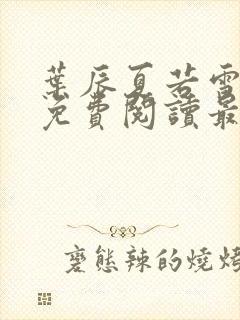 葉辰夏若雪
免費閱讀最
變態辣的燒烤